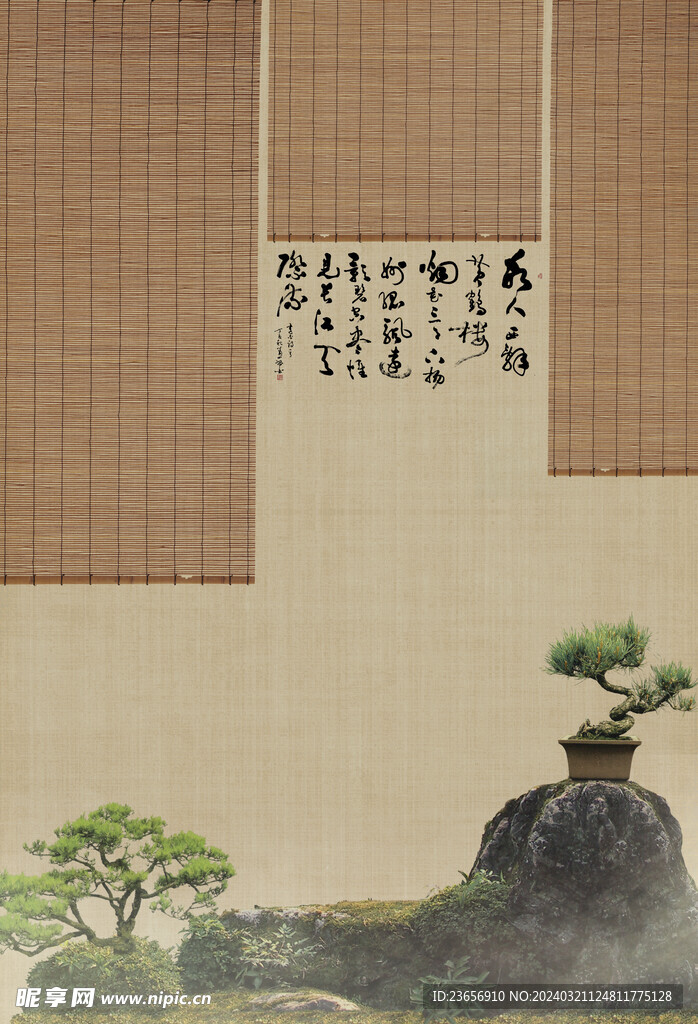 故人西辭
黄鶴楼
烟花三月下揚
州孤帆遠
影碧空盡惟
見长江天
際流
昵享网 www.nipic.cn
ID:23656910 NO:20240321124811775128